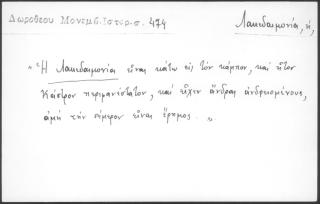 Δωροθεου Μονεμβ. Ιστορ. σ. 474
Λακεδαιμονία, ἡ,
"Ἡ Λακεδαιμονία εἶναι κάτω εἰς τὸν κάμπον, καὶ ἦτον
Κάστρον περιφανέστατον, καὶ εἶχεν ἄνδρας ἀνδρειωμένους,
ἀμὴ τὴν σήμερον εἶναι ἔρημος. "